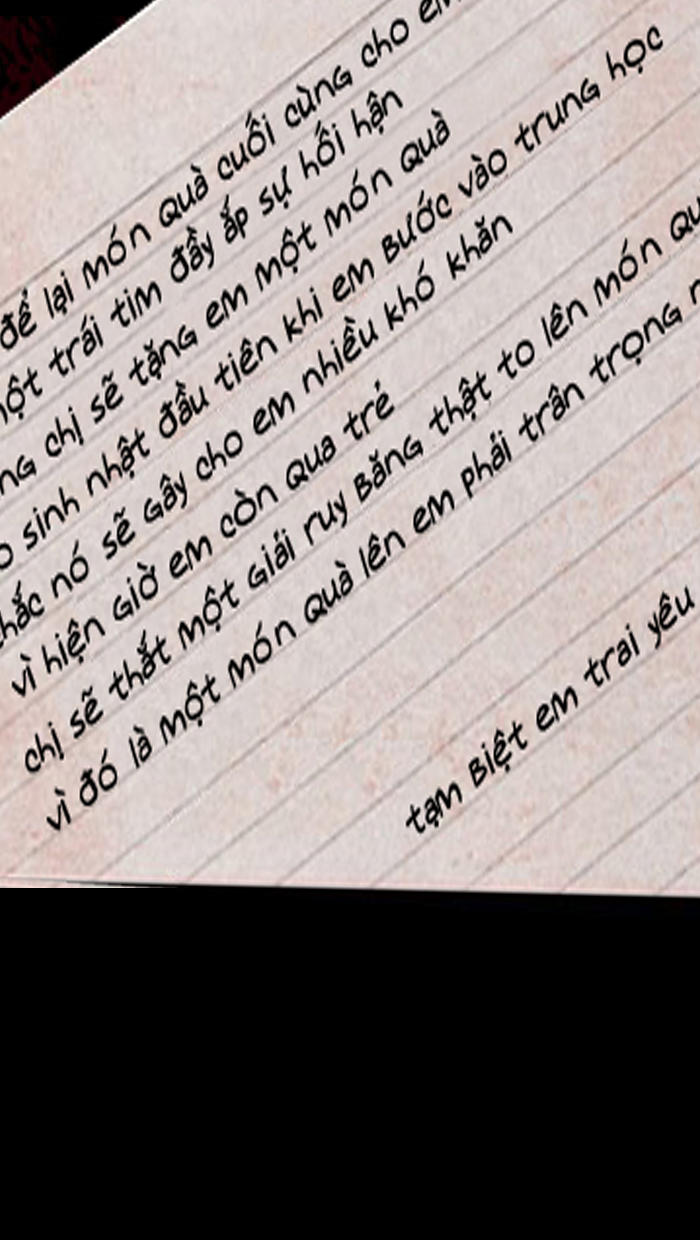 để lại món quà cuối cùng cho em
một trái tim đầy ắp sự hối hận
chị sẽ tặng em một món quà
sinh nhật đầu tiên khi em bước vào trung học
nó sẽ gây cho em nhiều khó khăn
vì hiện giờ em còn qua trẻ
chị sẽ thắt một giải ruy băng thật to lên món
vì đó là một món quà lên em phải trân trọng
tạm biệt em trai yêu